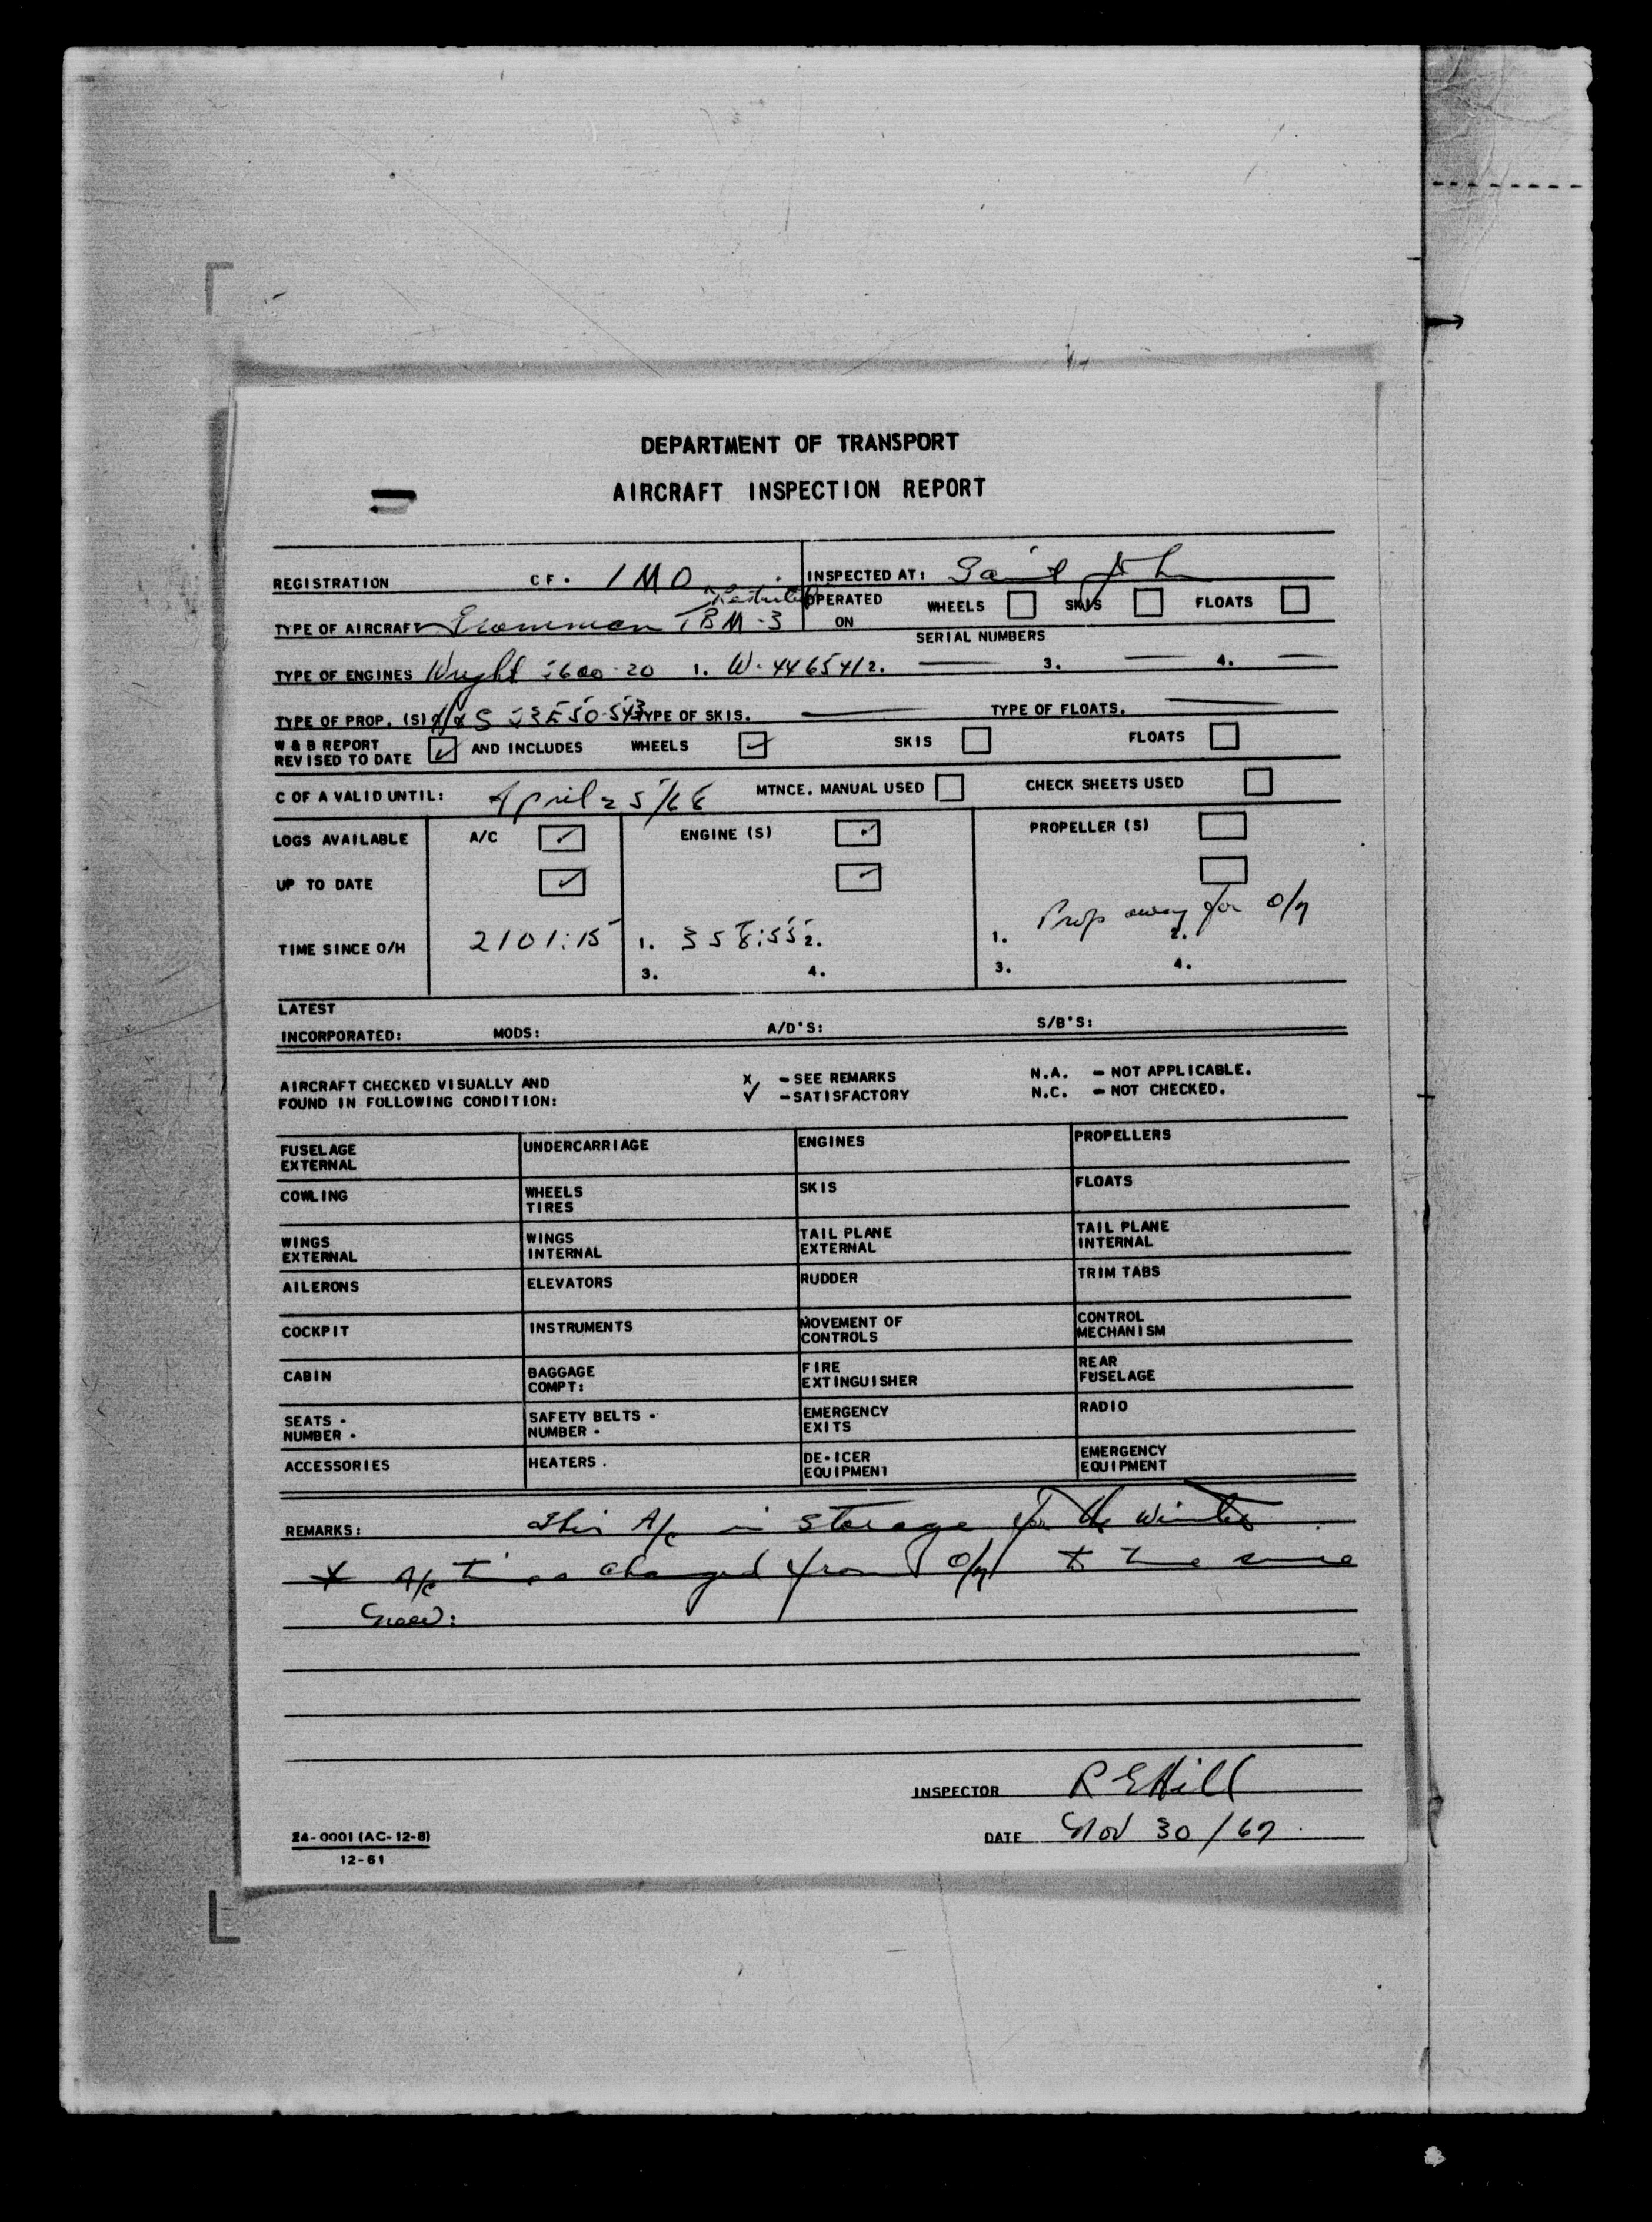 DEPARTMENT OF TRANSPORT
AIRCRAFT INSPECTION REPORT
REGISTRATION CF. IMO INSPECTED AT: Saint John
Restricted OPERATED ON WHEELS SKIS FLOATS
TYPE OF AIRCRAFT Grumman TBM-3
SERIAL NUMBERS
TYPE OF ENGINES Wright 2600-20 1. W-446541 2. — 3. — 4. —
TYPE OF PROP. (S) H/S TYPE OF SKIS. — TYPE OF FLOATS. —
W & B REPORT REVISED TO DATE ✓ AND INCLUDES WHEELS ✓ SKIS FLOATS
C OF A VALID UNTIL: April 25/68 MTNCE. MANUAL USED CHECK SHEETS USED
LOGS AVAILABLE A/C ✓ ENGINE (S) ✓ PROPELLER (S)
UP TO DATE ✓ ✓
Prop away for O/H
TIME SINCE O/H 2101:15 1. 358:55 2. 1. 2.
3. 4. 3. 4.
LATEST
INCORPORATED: MODS: A/D'S: S/B'S:
AIRCRAFT CHECKED VISUALLY AND X - SEE REMARKS N.A. - NOT APPLICABLE.
FOUND IN FOLLOWING CONDITION: ✓ - SATISFACTORY N.C. - NOT CHECKED.
FUSELAGE EXTERNAL UNDERCARRIAGE ENGINES PROPELLERS
COWLING WHEELS TIRES SKIS FLOATS
WINGS EXTERNAL WINGS INTERNAL TAIL PLANE EXTERNAL TAIL PLANE INTERNAL
AILERONS ELEVATORS RUDDER TRIM TABS
COCKPIT INSTRUMENTS MOVEMENT OF CONTROLS CONTROL MECHANISM
CABIN BAGGAGE COMPT: FIRE EXTINGUISHER REAR FUSELAGE
SEATS - NUMBER - SAFETY BELTS - NUMBER - EMERGENCY EXITS RADIO
ACCESSORIES HEATERS. DE-ICER EQUIPMENT EMERGENCY EQUIPMENT
REMARKS: This A/c in storage for the winter.
X A/c times changed from O/H to time since
new:
INSPECTOR R E Hill
24-0001 (AC-12-8) DATE Nov 30/67
12-61